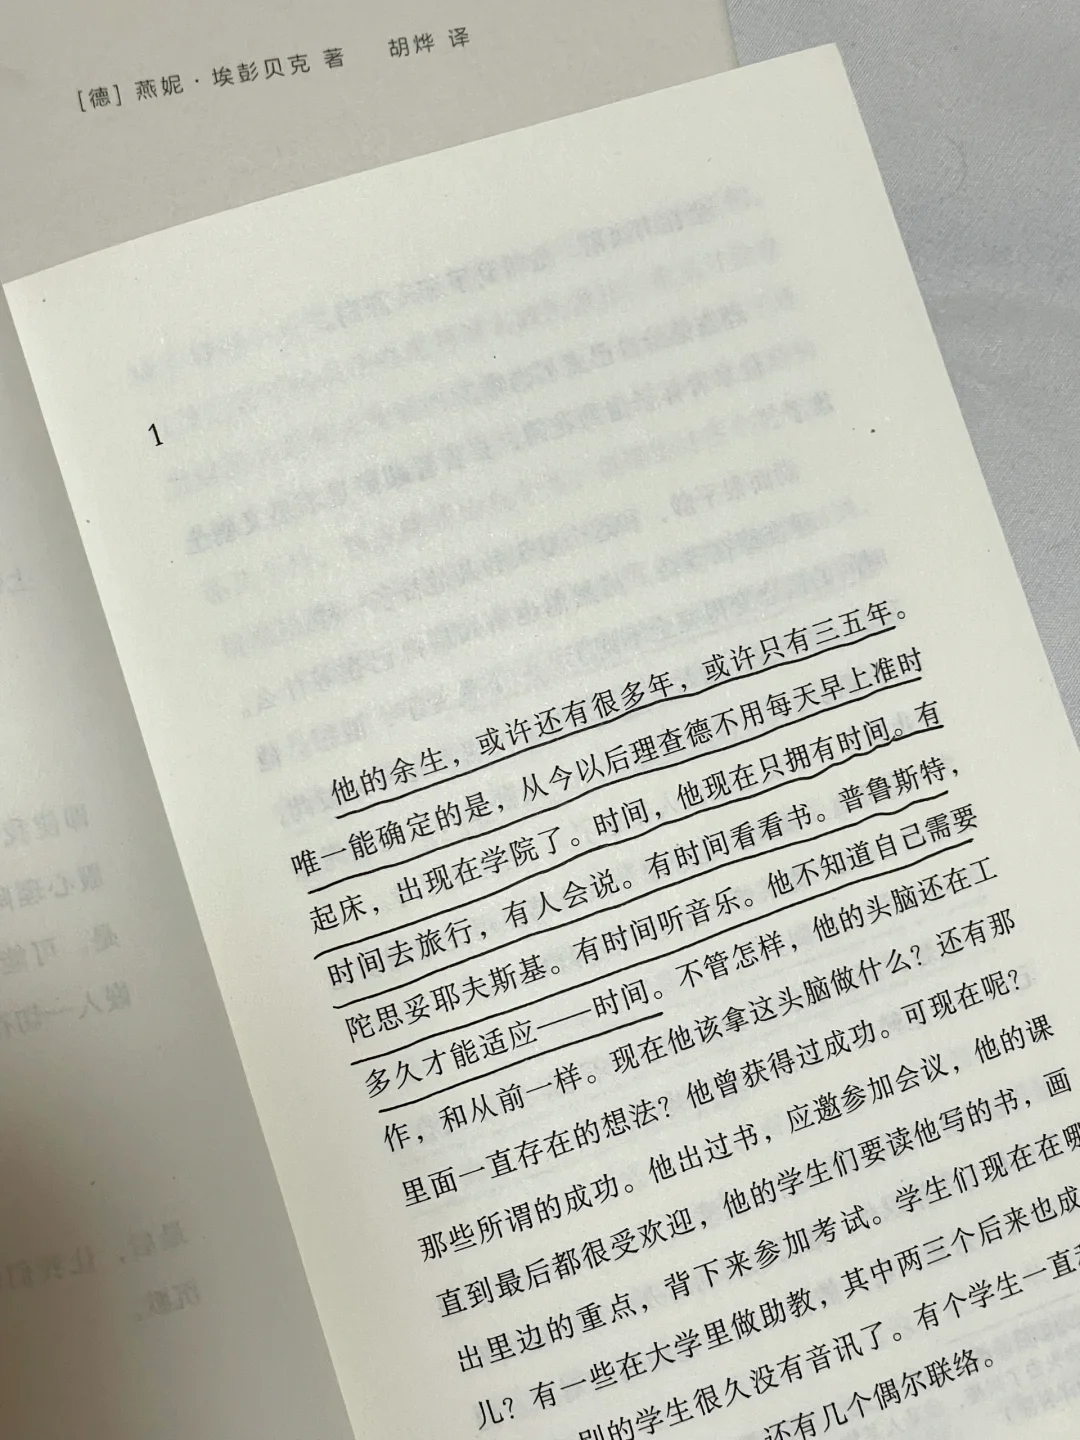 [德] 燕妮·埃彭贝克 著 胡烨 译
1
他的余生，或许还有很多年，或许只有三五年。
唯一能确定的是，从今以后理查德不用每天早上准时
起床，出现在学院了。时间，他现在只拥有时间。有
时间去旅行，有人会说。有时间看看书。普鲁斯特，
陀思妥耶夫斯基。有时间听音乐。他不知道自己需要
多久才能适应——时间。不管怎样，他的头脑还在工
作，和从前一样。现在他该拿这头脑做什么？还有那
里面一直存在的想法？他曾获得过成功。可现在呢？
那些所谓的成功。他出过书，应邀参加会议，他的课
直到最后都很受欢迎，他的学生们要读他写的书，画
出里边的重点，背下来参加考试。学生们现在在哪
儿？有一些在大学里做助教，其中两三个后来也成
别的学生很久没有音讯了。有个学生一直
还有几个偶尔联络。